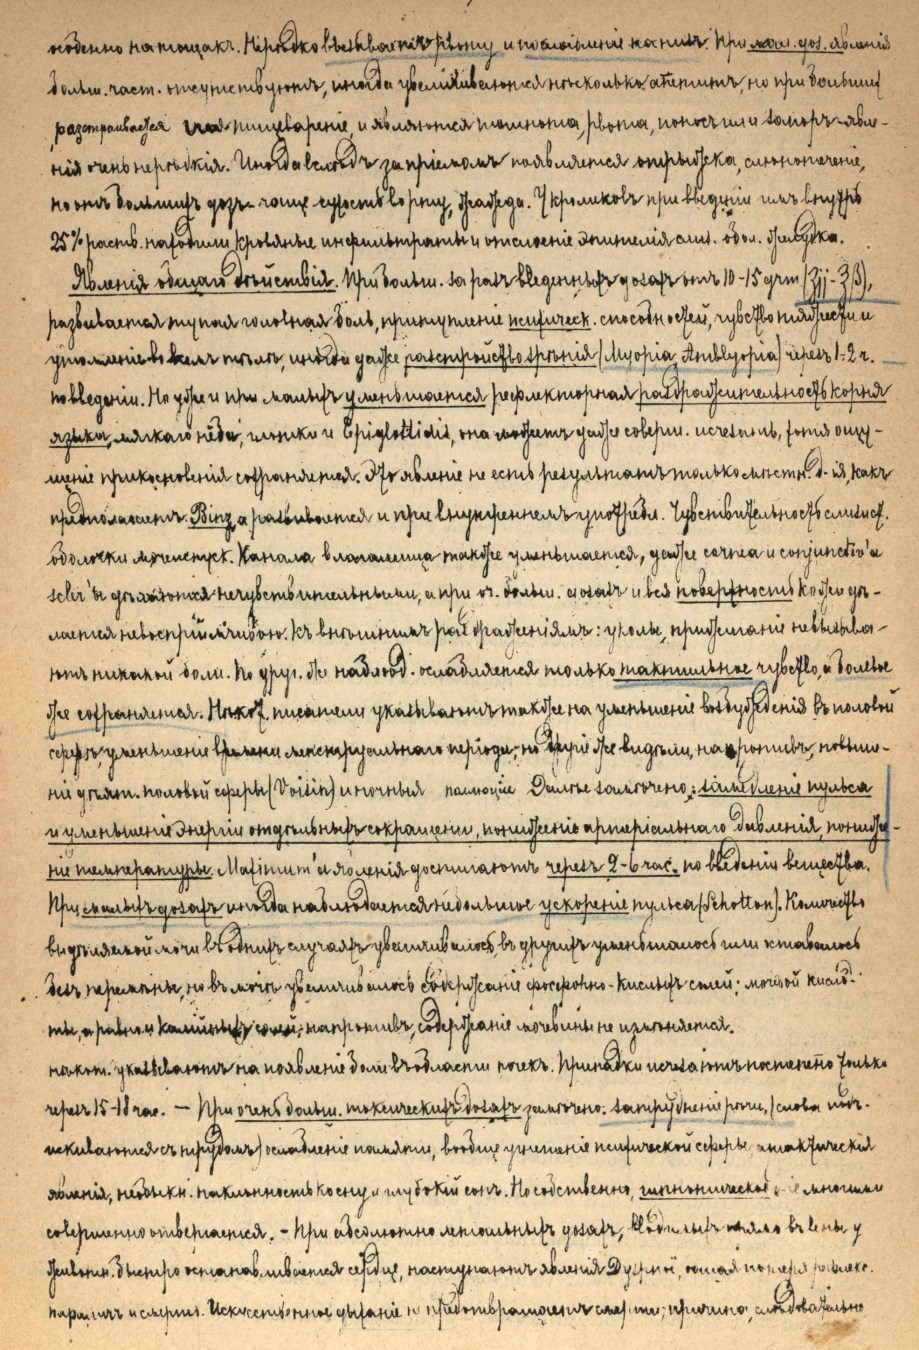 особенно на тощакъ. Нерѣдко вызываетъ рвоту и послабленіе на низъ. При мал. доз. явленія
больш. част. отсутствуютъ, иногда увеличивается нѣсколько апетитъ, но при большихъ
разстраивается пищевареніе, и являются тошнота, рвота, поносъ или запоръ – явле-
нія очень нерѣдкія. Иногда вслѣдъ за пріемомъ появляется отрыжка, слюнотеченіе,
но отъ большихъ дозъ – чаще сухость во рту, жажда. У кроликовъ при введеніи имъ внутрь
25% раств. находили кровяные инфильтраты и отслоеніе эпителія слиз. обол. желудка.
Явленія общаго дѣйствія. При больш. за разъ введенныхъ дозахъ отъ 10-15 grm (Ʒijj - Ʒ ß),
развивается тупая головная боль, притупленіе психическ. способностей, чувство тяжести и
утомленіе во всемъ тѣлѣ, иногда даже разстройство зрѣнія (Myopia, Amblyopia) черезъ 1-2 ч.
по введеніи. Но уже и при малыхъ уменьшается рефлекторная раздражительность корня
языка, мягкаго нёба, глотки и Epiglottidis, она можетъ даже соверш. исчезать, хотя ощу-
щеніе прикосновенія сохраняется. Это явленіе не есть результатъ только мѣстн. д-ія, какъ
предполагаетъ Binz, а развивается и при внутреннемъ употребл. Чувствительность слизист.
оболочки мочеиспуск. канала влагалища также уменьшается, даже cornea и conjunctiv'а
scler'ы дѣлаются нечувствительными, а при оч. больш. дозахъ и вся поверхность кожи дѣ-
лается невоспріимчивою къ внѣшнимъ раздраженіямъ: уколы, прижиганіе не вызыва-
ютъ никакой боли. По друг. же наблюд. ослабляется только тактильное чувство, а болевое
же сохраняется. Нѣкот. писатели указываютъ также на уменьшеніе возбужденія въ половой
сферѣ, уменьшеніе времени менструальнаго періода; но другіе же видѣли, напротивъ, повыше-
ніе дѣят. половой сферы (Voisin) и ночныя поллюціи Далѣе замѣчено: замедленіе пульса
и уменьшеніе энергіи отдѣльныхъ сокращеній, пониженіе артеріальнаго давленія, пониже-
ніе температуры. Maximum'а явленія достигаютъ черезъ 2-6 час. по введеніи вещества.
При малыхъ дозахъ иногда наблюдается небольшое ускореніе пульса (Schotten). Количество
выдѣляемой мочи въ однихъ случаяхъ увеличивалось, въ другихъ уменьшалось или оставалось
безъ перемѣны, но въ мочѣ увеличивалось содержаніе фосфорно-кислыхъ солей; мочевой кисло-
ты, а равно и солей; напротивъ, содержаніе мочевины не измѣняется.
нѣкот. указываютъ на появленіе боли въ области почекъ. Припадки исчезаютъ постепенно только
черезъ 15-18 час. – При очень больш. токсическихъ дозахъ замѣчено: затрудненіе рѣчи, (слова подъ-
искиваются съ трудомъ) ослабленіе памяти, вообще угнетеніе психической сферы, атактическія
явленія, необыкн. наклонность ко сну и глубокій сонъ. Но собственно, гипнотическое многими
совершенно отвергается. – При абсолютно летальныхъ дозахъ, въ вены у
животн. быстро останавливается сердце, наступаютъ явленія Дуспноё, общая потеря рефлекс.
параличъ и смерть. Искусственное дыханіе не предотвращаетъ смерти; причина, слѣдовательно